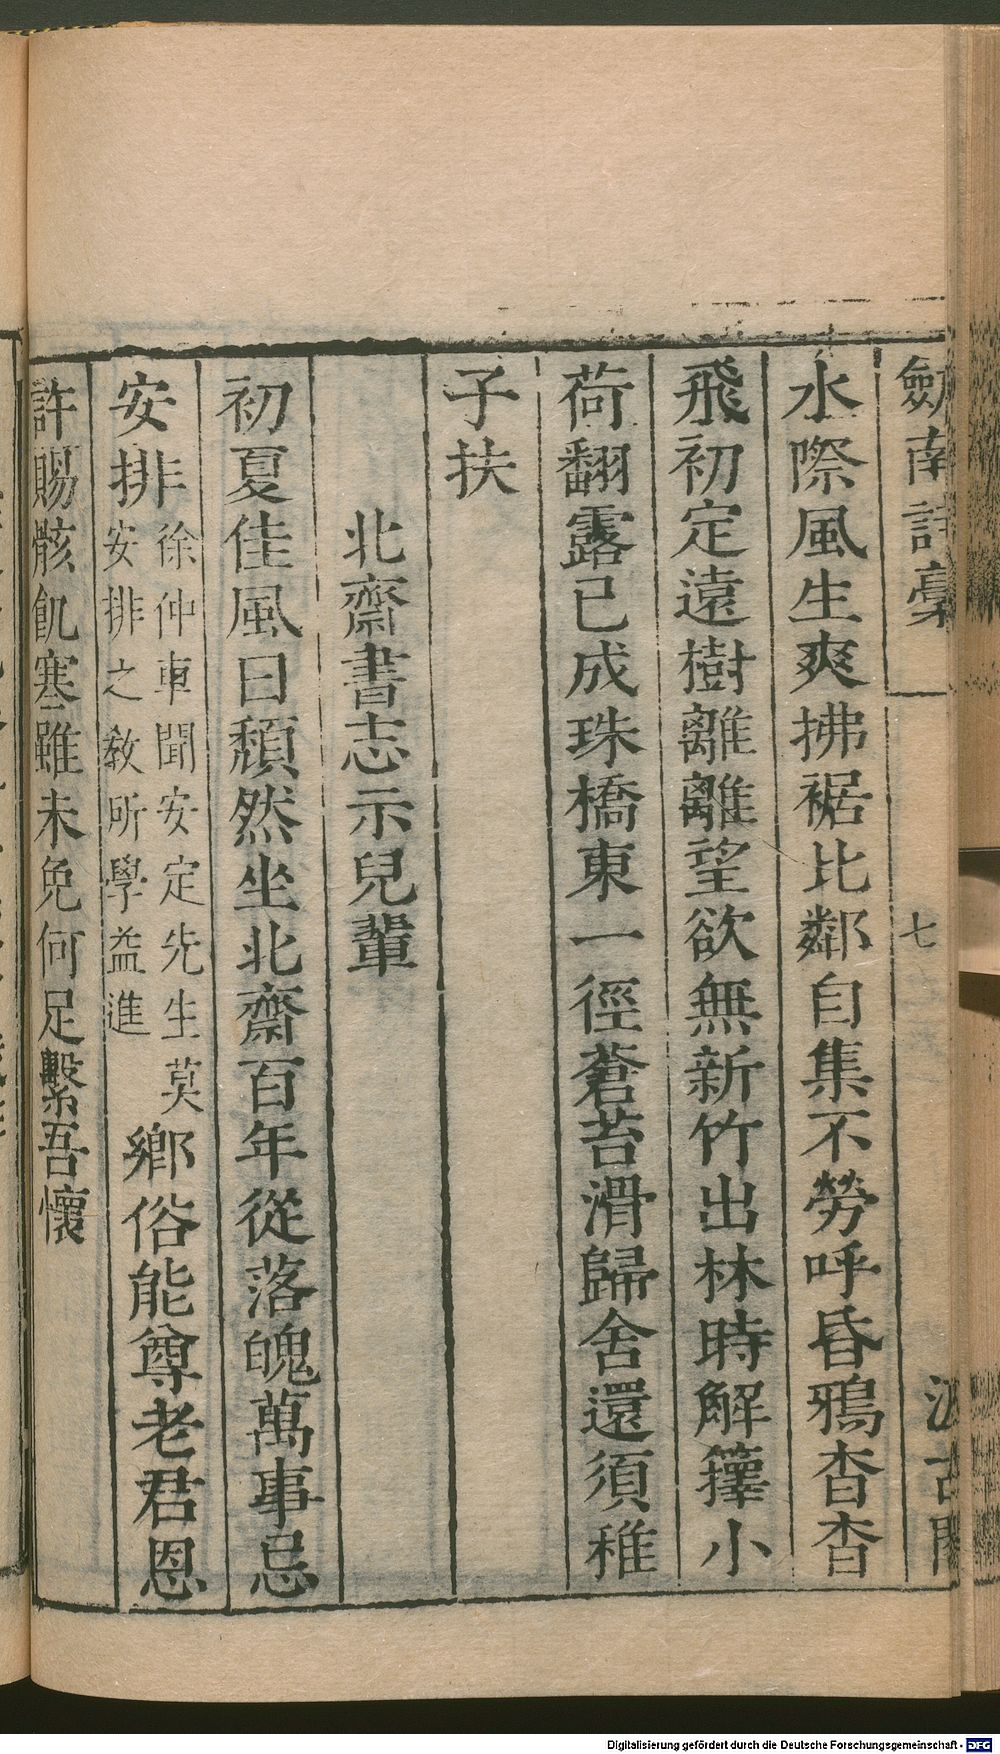 劒南詩稾
七
汲古閣
水際風生爽拂裾比鄰自集不勞呼昏鴉杳杳
飛初定遠樹離離望欲無新竹出林時解籜小
荷翻露已成珠橋東一徑蒼苔滑歸舍還須稚
子扶
北齋書志示兒輩
初夏佳風日頽然坐北齋百年從落魄萬事忌
安排徐仲車聞安定先生莫
安排之敎所學益進鄉俗能尊老君恩
許賜骸飢寒雖未免何足繫吾懷
Digitalisierung gefördert durch die Deutsche Forschungsgemeinschaft - DFG